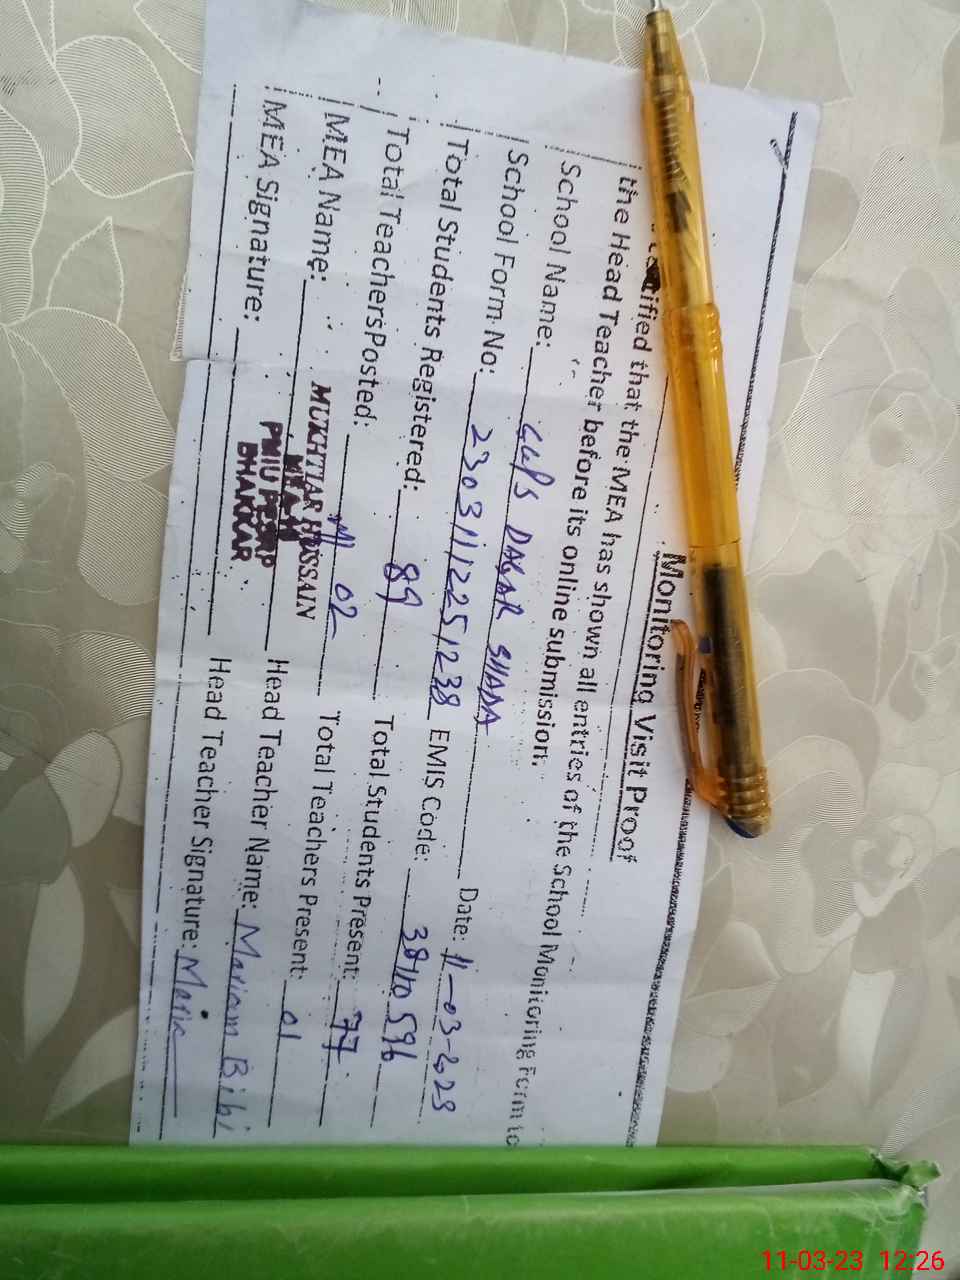 Monitoring Visit Proof
tified that the MEA has shown all entries of the School Monitoring Form to
the Head Teacher before its online submission.
School Name: GGPS DAGAR SHADA Date: 11-03-2023
School Form No: 23031112251238 EMIS Code: 38110596
Total Students Registered: 89 Total Students Present: 77
Total Teachers Posted: 02 Total Teachers Present: 01
MEA Name: MUKHTIAR HUSSAIN Head Teacher Name: Mariam Bibi
MEA Signature: Head Teacher Signature: Maria
BHAKKAR
11-03-23 12:26